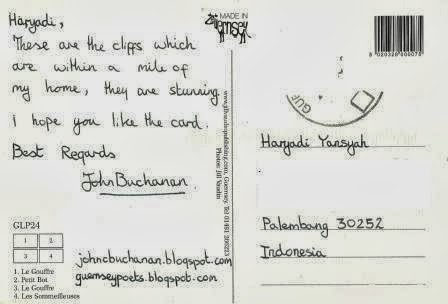 Haryadi,
These are the cliffs which
are within a mile of
my home, they are stunning.
I hope you like the card.
Best Regards
John Buchanan.
GLP24
1 2
3 4
1. Le Gouffre
2. Petit Bot
3. Le Gouffre
4. Les Sommeilleuses
johncbuchanan.blogspot.com
guernseypoets.blogspot.com
MADE IN
Guernsey
Photos: Jill Vaudin
GUE
Haryadi Yansyah
Palembang 30252
Indonesia